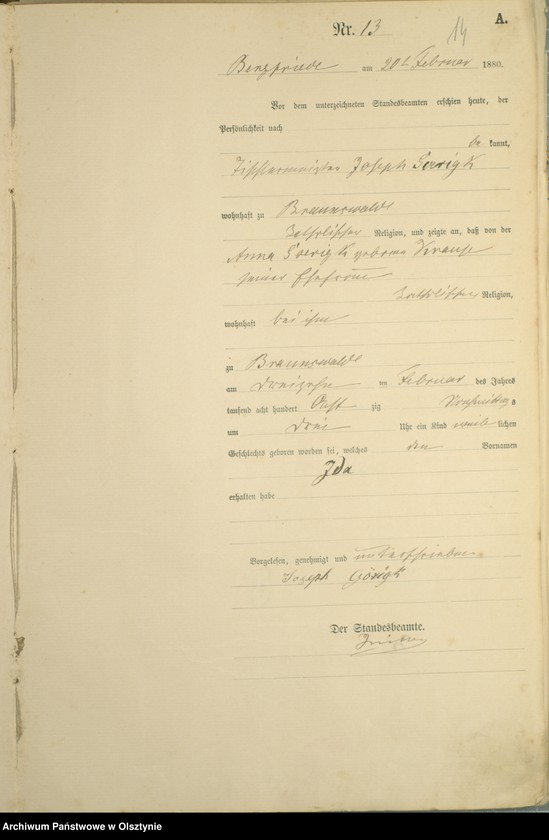 A.
Nr. 13
14
Bergfriede am 20t Februar 1880.
Vor dem unterzeichneten Standesbeamten erschien heute, der
Persönlichkeit nach
be kannt,
Tischlermeister Joseph Goerigk
wohnhaft zu Braunswalde
katholischer Religion, und zeigte an, daß von der
Anna Goerigk geborene Krause
seiner Ehefrau
katholischer Religion,
wohnhaft bei ihm
zu Braunswalde
am dreizehn ten Februar des Jahres
tausend acht hundert Acht zig Vormittags
um drei Uhr ein Kind weib lichen
Geschlechts geboren worden sei, welches den Vornamen
Ida
erhalten habe
Vorgelesen, genehmigt und unterschrieben
Joseph Görigk
Der Standesbeamte.
Archiwum Państwowe w Olsztynie